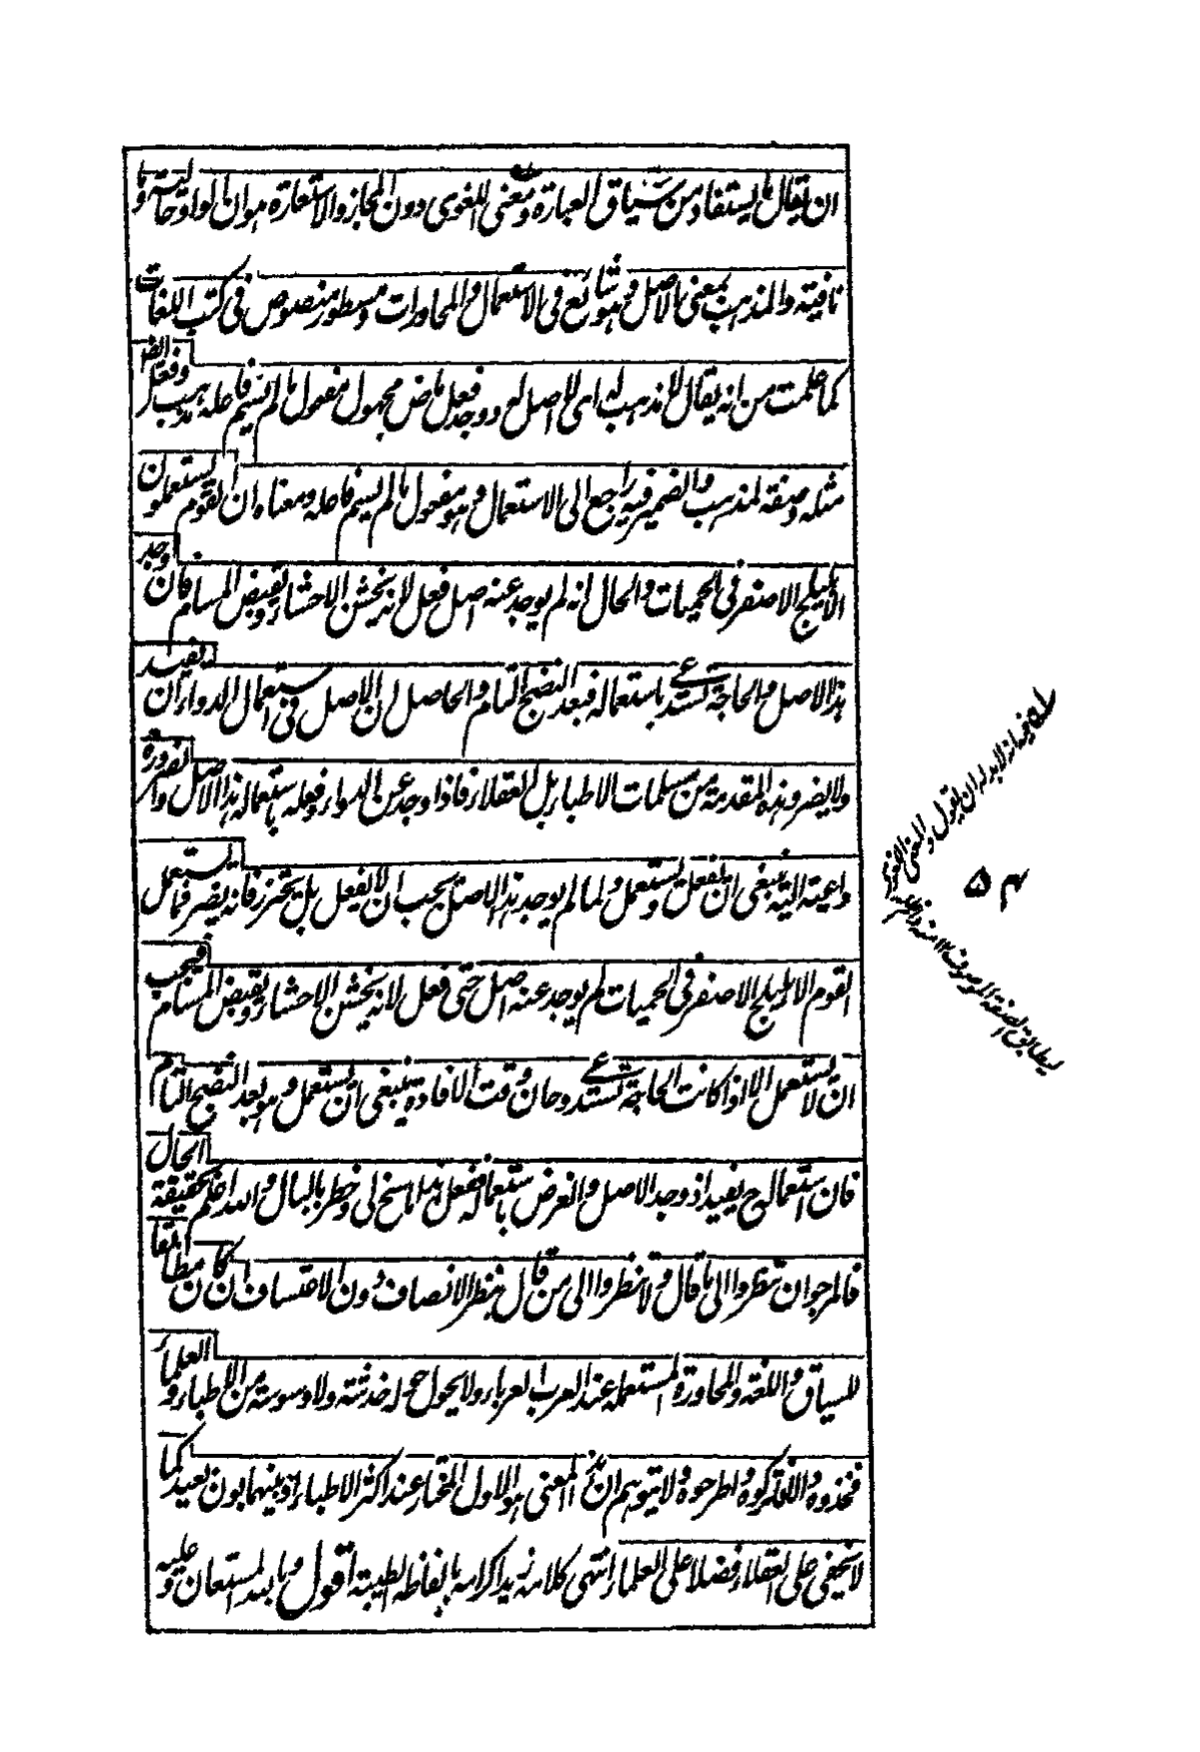 ان يقال ما يستفاد من سياق العبارة ومعنى اللغوى دون المجاز والاستعارة هو ان الواو حالية وما
نافية والمذهب بمعنى الاصل وهو شائع فى الاستعمال والمحاورات ومسطور منصوص فى كتب اللغات
كما علمت من انه يقال لا مذهب له اى لا اصل له ووجد فعل ماض مجهول مفعول ما لم يسم فاعله مذهب وفعل ايضا
مثله وصفة لمذهب والضمير فيه راجع الى الاستعمال وهو مفعول ما لم يسم فاعله ومعناه ان القوم يستعملون
الاهليلج الاصفر فى الحميات والحال انه لم يوجد عنه اصل فعل لانه يخشن الاحشاء ويقبض المسام فان وجد
هذا الاصل والحاجة تستدعى باستعماله فبعد النضج التام والحاصل ان الاصل فى استعمال الدواء ان يفيد
ولا يضر وهذه المقدمة من مسلمات الاطباء بل العقلاء فاذا وجد عن الدواء وفعله باستعماله هذا الاصل والضرورة
داعية اليه ينبغى ان يفعل ويستعمل ولما لم يوجد هذا الاصل يجب ان لا يفعل بل يحترز فانه يضر فما يستعمل
القوم الاهليلج الاصفر فى الحميات لم يوجد عنه اصل حتى فعل لانه يخشن الاحشاء ويقبض المسام فيجب
ان لا يستعمل الا اذا كانت الحاجة تستدعى وحان وقت الافادة ينبغى ان يستعمل وهو بعد النضج التام
فان استعماله ح يفيد اذ وجد الاصل والغرض باستعماله ففعل هذا ما سنح لى وخطر بالبال والله اعلم بحقيقة الحال
فالمرجو ان تنظروا الى ما قال ولا تنظروا الى من قال بنظر الانصاف دون الاعتساف ان كان مطابقا
للسياق واللغة والمحاورة المستعملة عند العرب العرباء ولا يحول حوله خدشة ولا وسوسة من الاطباء والعلماء
فخذوه والا فاتركوه واطرحوه ولا يتوهم ان هذا المعنى هو الاول المختار عند اكثر الاطباء اذ بينهما بون بعيد كما
لا يخفى على العقلاء فضلا على العلماء انتهى كلامه زيد اكرامه بالفاظه الطيبة اقول وبالله المستعان وعليه
لابد له ان يقول والمعنى اللغوى
ليطابق الصفة الموصوف
۵۴